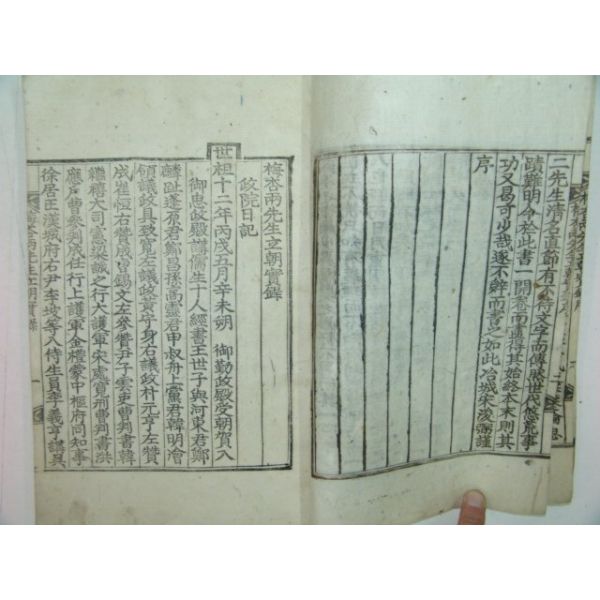 二先生淸名直節有不待文字而傳然世代悠荒事
蹟難明今於此書一開卷而盡得其始終本末則其
功又曷可少哉遂不辭而書之如此冶城宋浚弼謹
序
梅杏兩先生立朝實錄
政院日記
世祖十二年丙戌五月辛未朔 御勤政殿受朝賀入
御忠政殿講儒生十人經書王世子與河東君鄭
麟趾蓬原君鄭昌孫高靈君申叔舟上黨君韓明澮
領議政具致寬左議政黃守身右議政朴元亨左贊
成崔恒右贊成曺錫文左參贊尹子雲吏曹判書韓
繼禧大司憲梁誠之行大護軍宋處寬刑曹判書洪
應戶曹參判成任行上護軍金禮蒙中樞府同知事
徐居正漢城府右尹李坡等入侍生員李義亨講吳